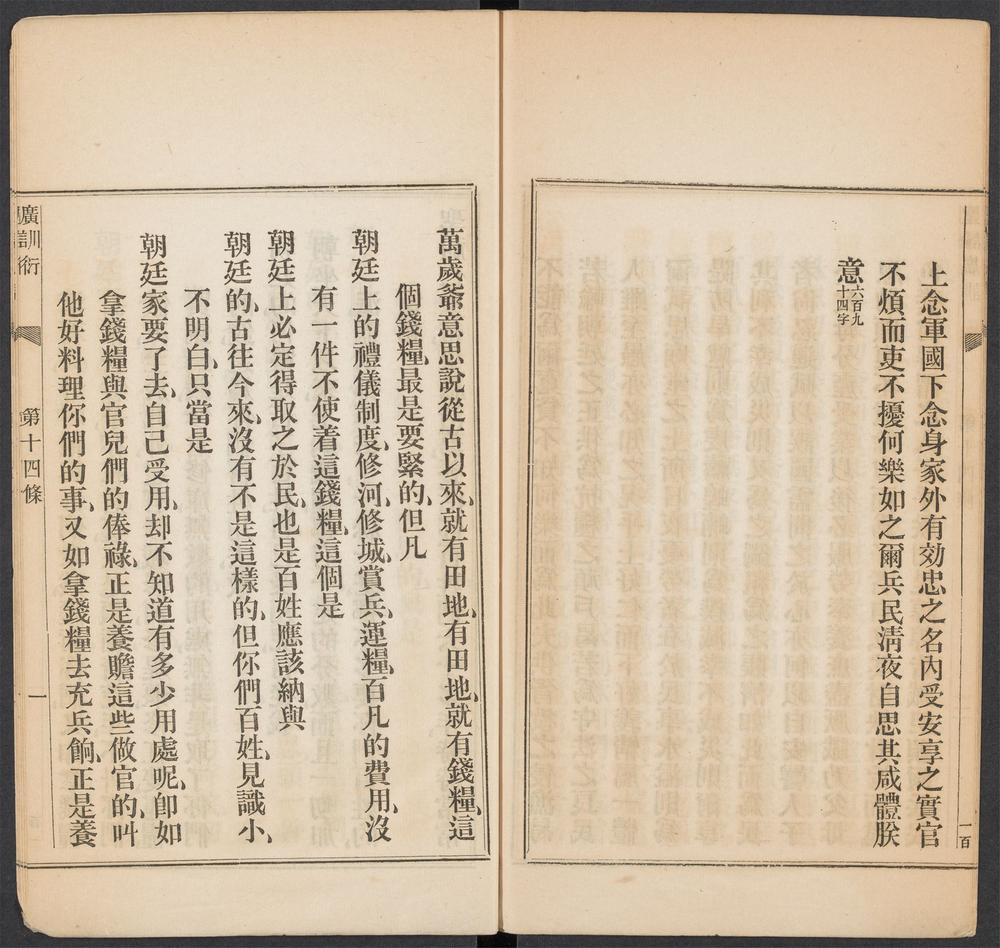 上念軍國下念身家外有効忠之名內受安享之實官
不煩而吏不擾何樂如之爾兵民淸夜自思其咸體朕
意六百九十四字
一百
萬歲爺意思說從古以來、就有田地、有田地、就有錢糧、這
個錢糧、最是要緊的、但凡
朝廷上的禮儀制度、修河、修城、賞兵、運糧、百凡的費用、沒
有一件不使着這錢糧、這個是
朝廷上必定得取之於民、也是百姓應該納與
朝廷的、古往今來、沒有不是這樣的、但你們百姓、見識小、
不明白、只當是
朝廷家要了去、自己受用、却不知道有多少用處呢、卽如
拿錢糧與官兒們的俸祿、正是養贍這些做官的、叫
他好料理你們的事、又如拿錢糧去充兵餉、正是養
廣訓衍
第十四條
一